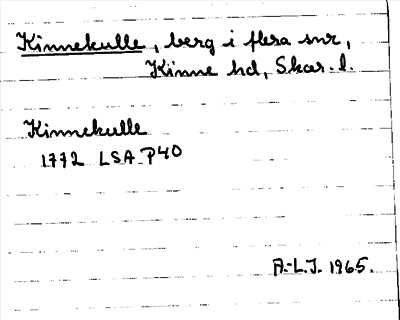 Kinnekulle, berg i flera snr,
Kinne hd, Skar. l.
Kinnekulle
1772 LSA P40
A.-L.J. 1965.